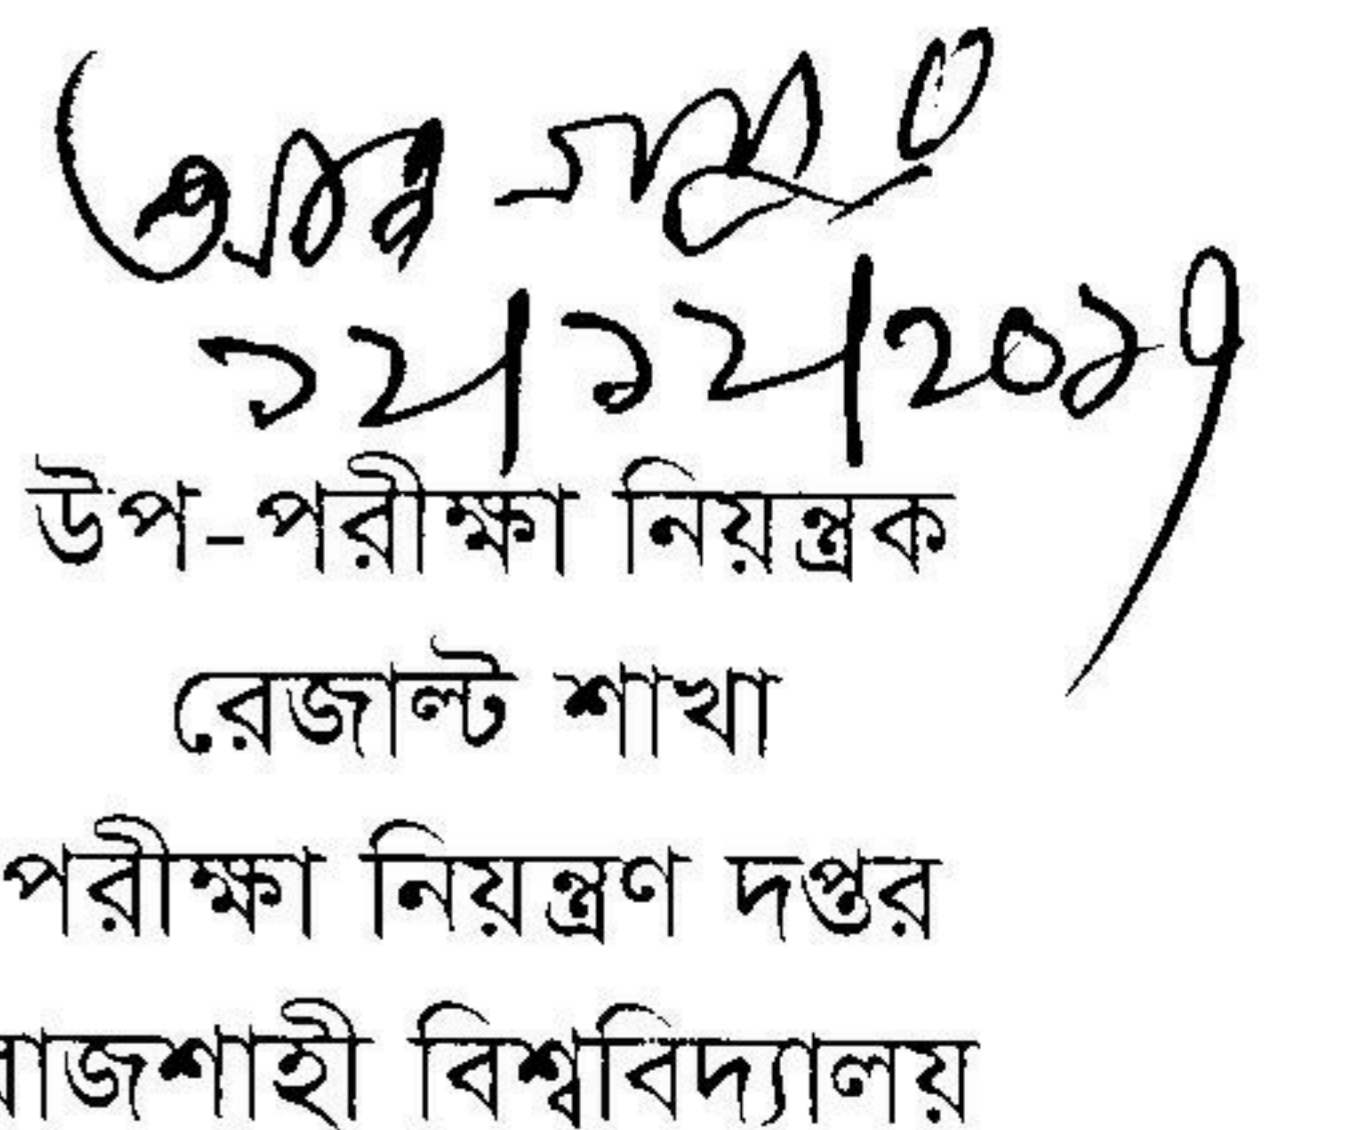 ১২/১২/২০১৭
উপ-পরীক্ষা নিয়ন্ত্রক
রেজাল্ট শাখা
পরীক্ষা নিয়ন্ত্রণ দপ্তর
রাজশাহী বিশ্ববিদ্যালয়